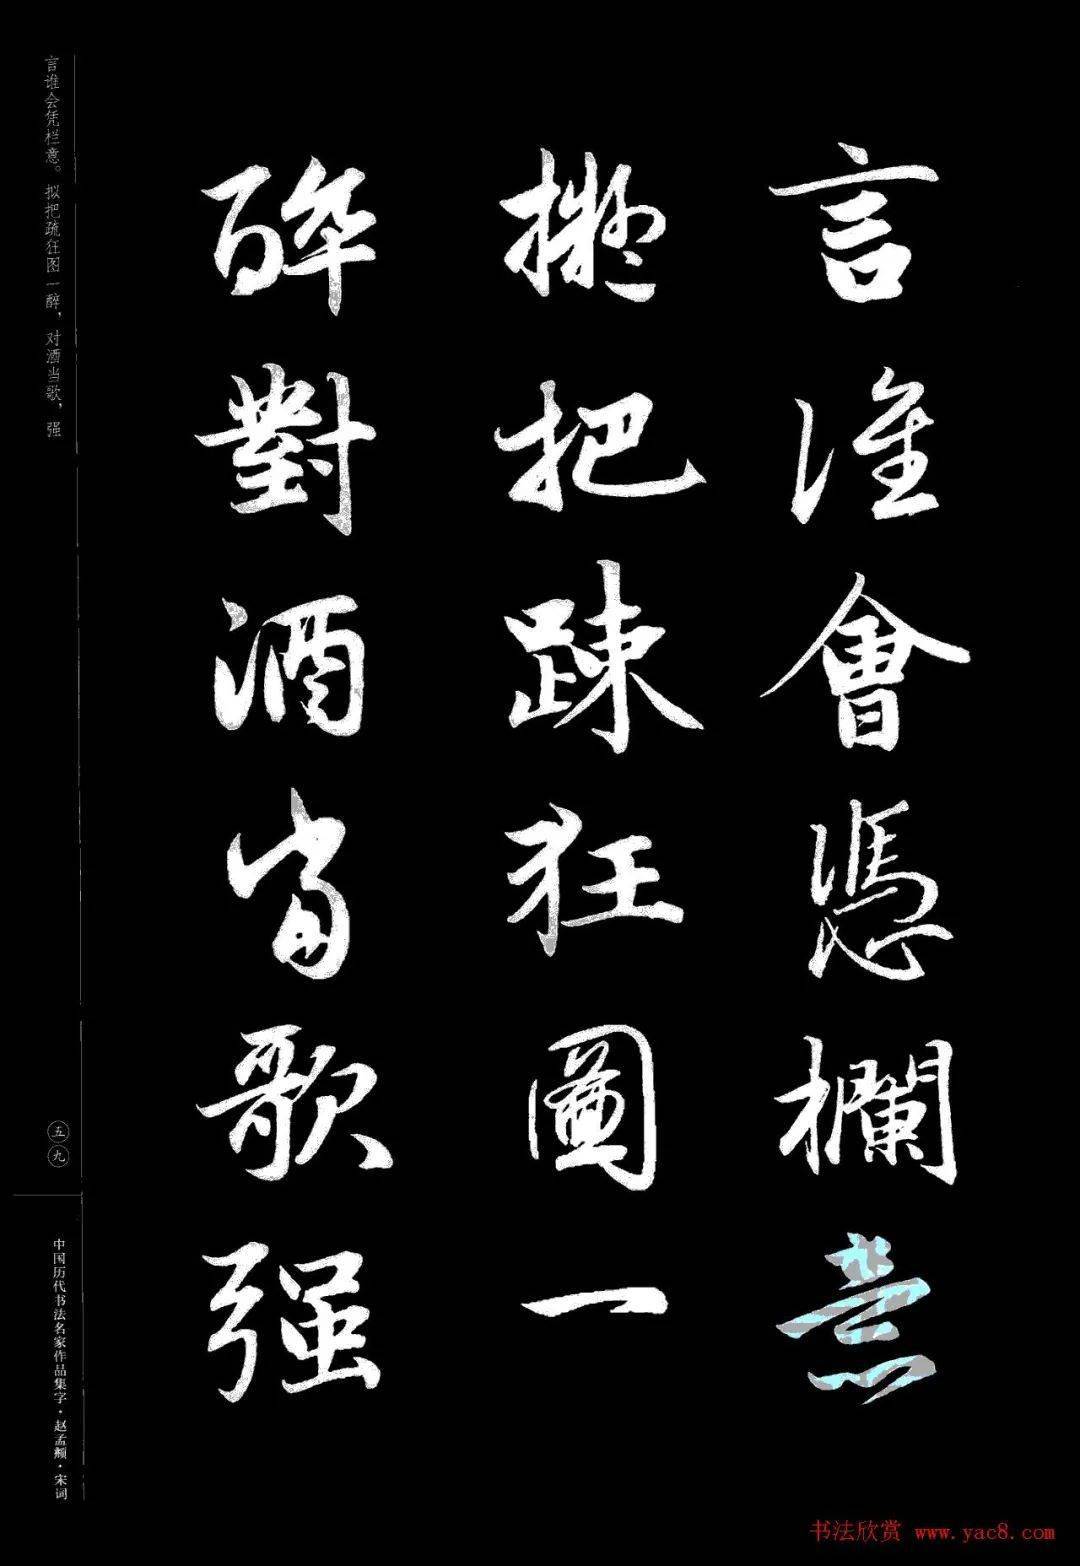 言誰會憑欄意
擬把踈狂圖一
醉對酒當歌强
言谁会凭栏意。拟把疏狂图一醉，对酒当歌，强
五九
中国历代书法名家作品集字·赵孟頫·宋词
书法欣赏 www.yac8.com